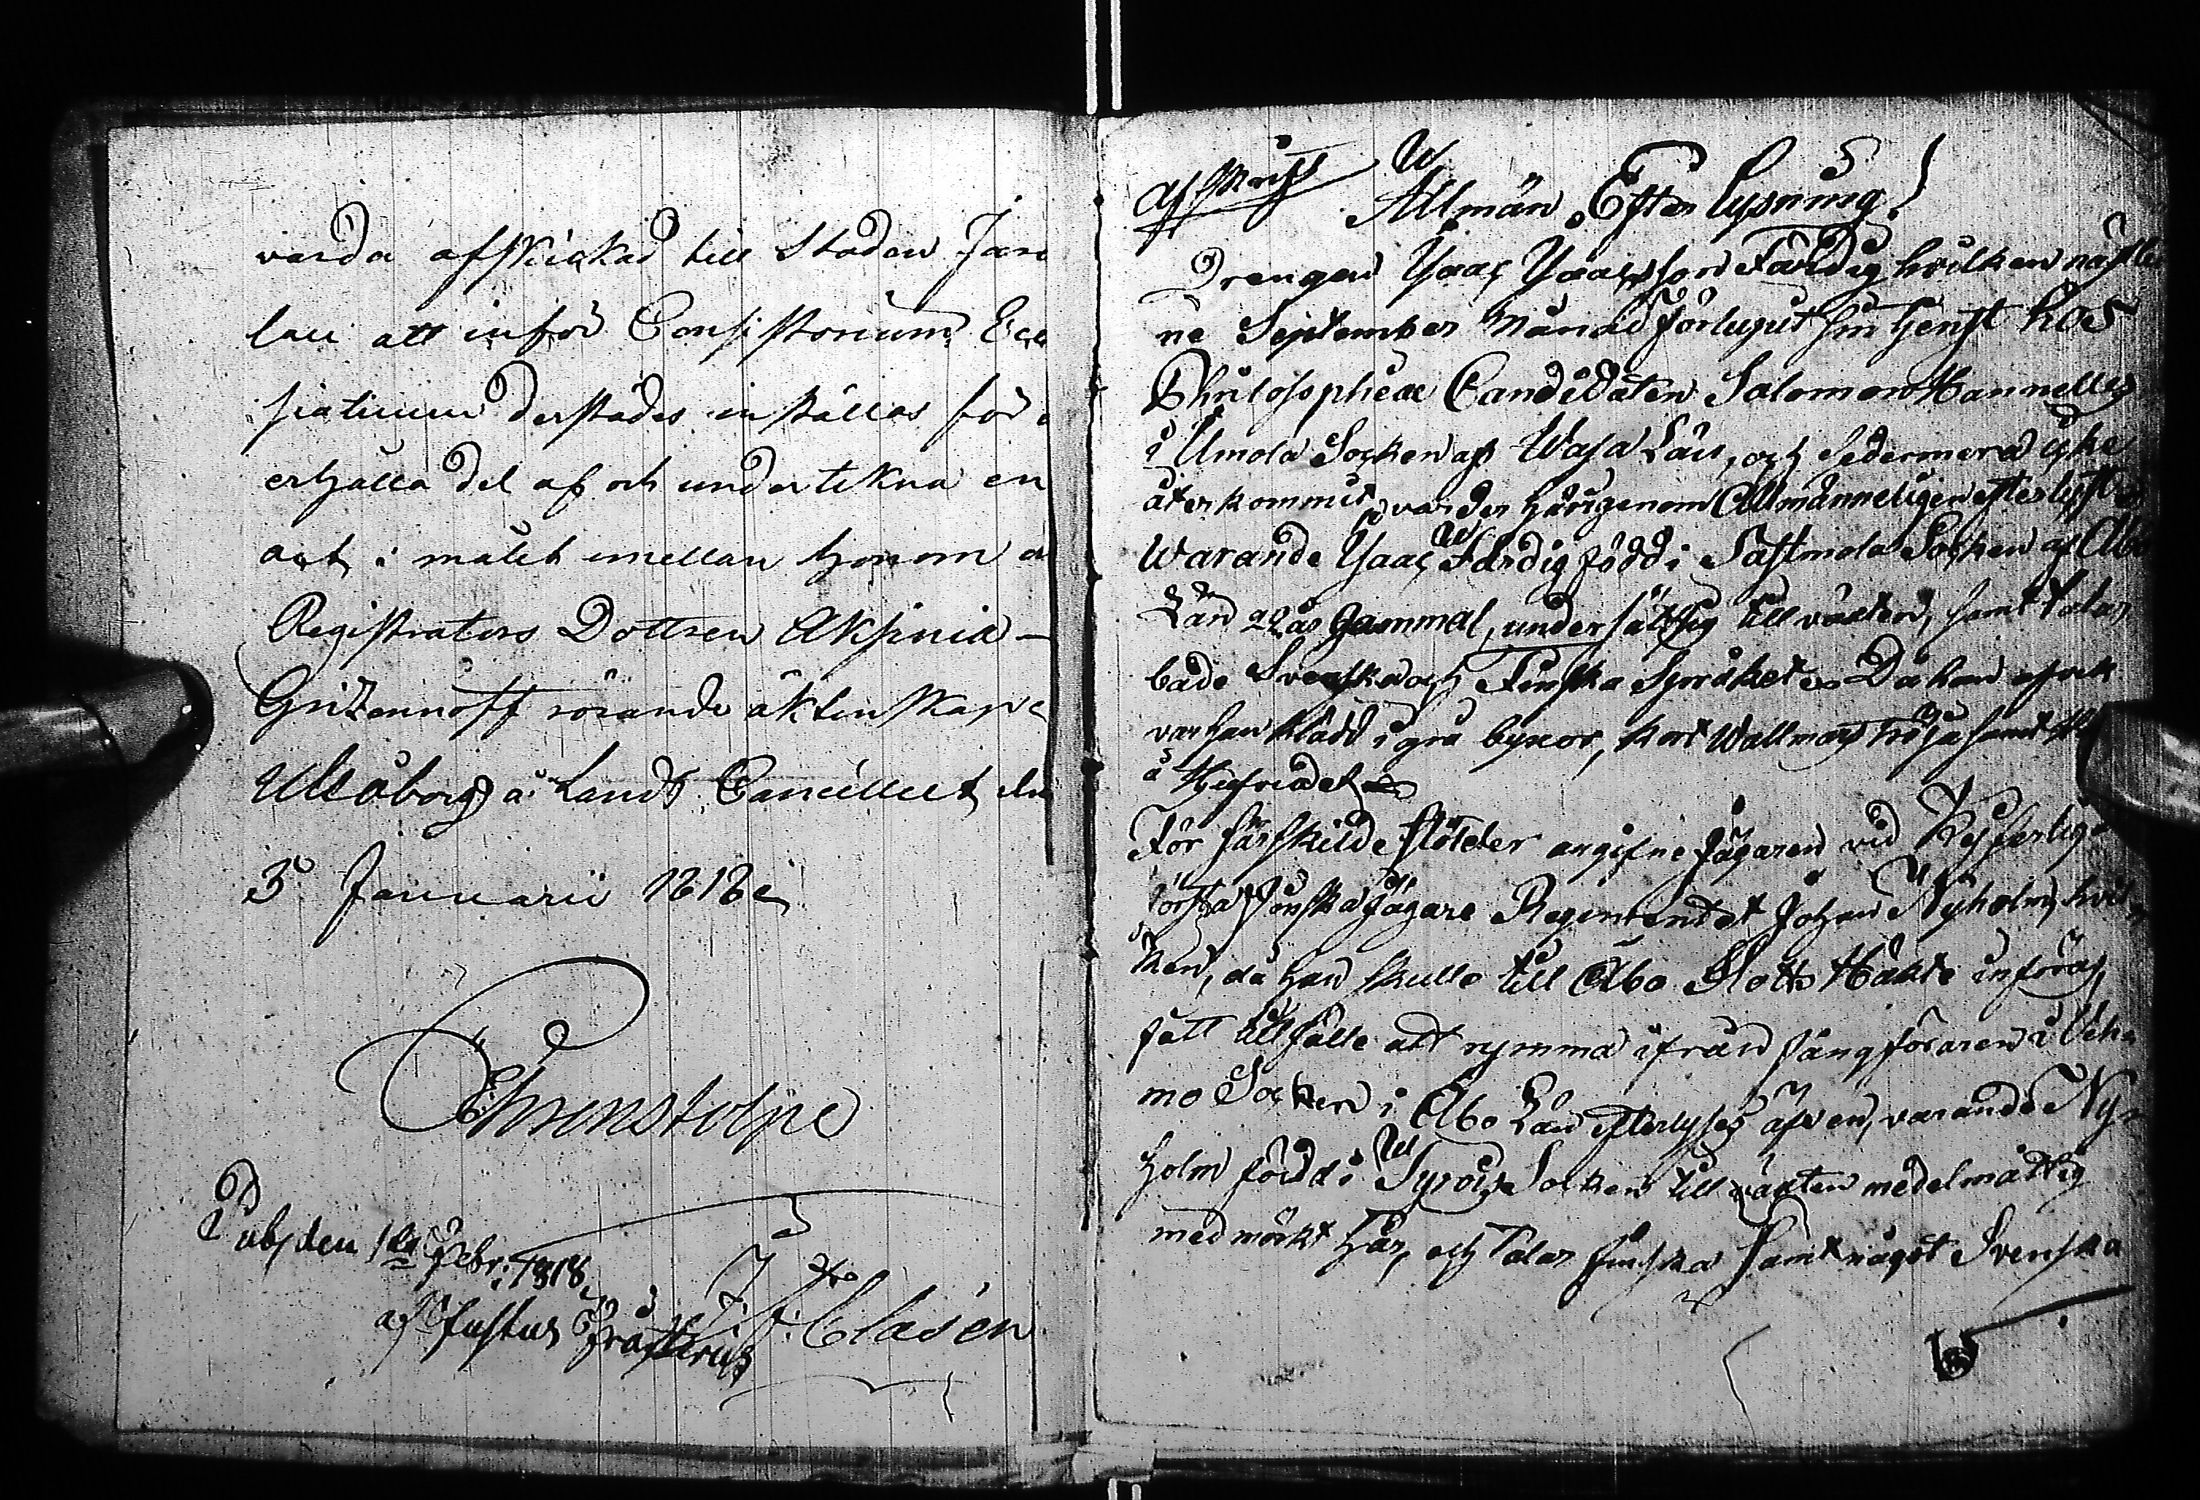 varda afskickad till Staden Jaro
lau att inför Consistorium Eccle
siaticum derstädes inställas för a
erhålla del af och underteckna en
act i målet emellan honom o
Registrators Dottren Aksinia
Gritzennoff rörande äktenskap
Uleåborg å Lands Cancelliet den
3 Januarii 1818
Ehrenstolpe
J. F. Clasén
Publ den 1sta Febr: 1818
af Justus Fraserus
Afskrift
Allmän Efterlysning!
Drengen Isaac Isaacsson Färdig hvilken nästled
ne September Månad förlupit sin tjenst hos
Philosophiæ Candidaten Salomon Hannelius
i Ilmola Socken af Wasa Län, och sedermera icke
återkommit, varder härigenom Allmänneligen efterlyst
Warande Isaac Färdig född i Sastmola Socken af Åbo
Län 22 år Gammal, undersättsig till växten, samt talar
både Svenska och Finska Språket Då han afvek
var han klädd i grå byxor, kort Wallmars tröja samt
å Hufvudet
För särskilde stölder angifne Jägaren vid Kejserlige
första Finska Jägare Regimentet Johan Nyholm, hvil
ken, då han skulle till Åbo Slotts Häkte införas,
fått tillfälle att rymma ifrån fångföraren i Veh
mo Socken i Åbo Län efterlyses äfven, varande Ny
holm född i Tyrvis Socken till växten medelmåttig
med mörkt Hår, och talar finska samt något Svenska